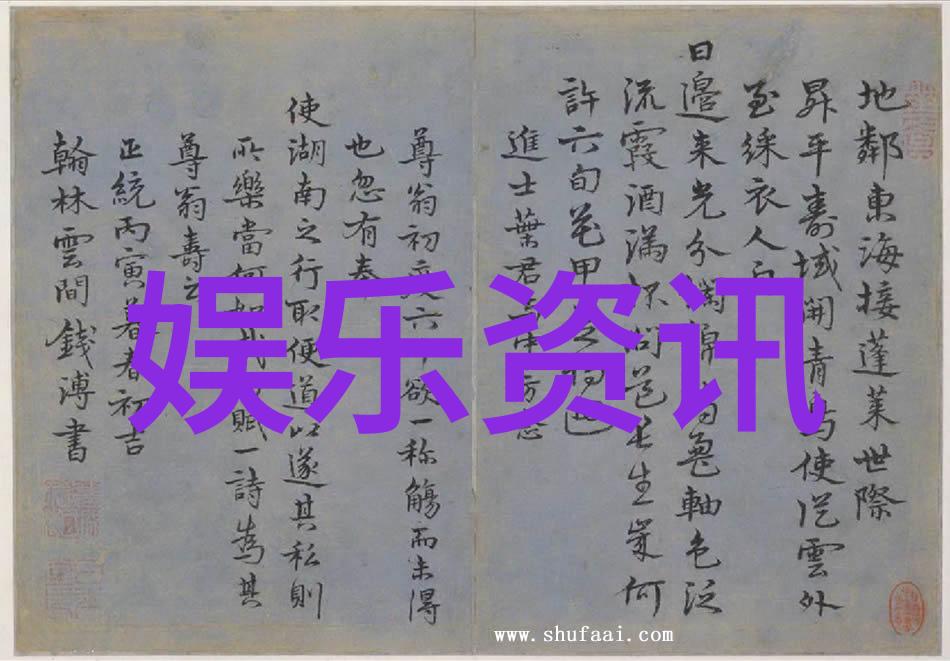 地鄰東海接蓬萊世際
昇平壽域開青鳥使從雲外
至綵衣人
日邊來光分 軸色泛
流霞酒滿 問 長生 何
許六旬花甲
進士葉君
尊翁初 六 欲一称觴而未得
也忽有奉
使湖南之行取便道以遂其私則
所樂當何如 賦一詩為其
尊翁壽
正統丙寅 初吉
翰林雲間錢溥書
娱乐资讯
www.shufaai.com